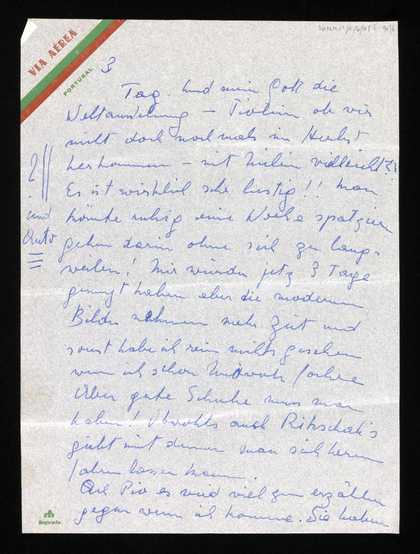 VIA AÉREA
PORTUGAL
3
Tag. Und mein Gott die
Weltausstellung – ob wir
nicht doch nochmals im Herbst
herkommen – mit vielleicht?
Es ist wirklich sehr lustig!! Man
könnte ruhig eine Woche spatzieren
gehen darin ohne sich zu lang-
weilen! Mir würden jetz 3 Tage
genügt haben aber die modernen
Bilder nehmen mehr Zeit und
sonst habe ich rein nichts gesehen
wenn ich schon
Aber gute Schuhe muss man
haben! auch Rikschah's
giebt mit denen man sich herum
fahren lassen kann.
es wird viel zum erzählen
gegen wenn ich komme. Sie haben
2 ||
und
Auto